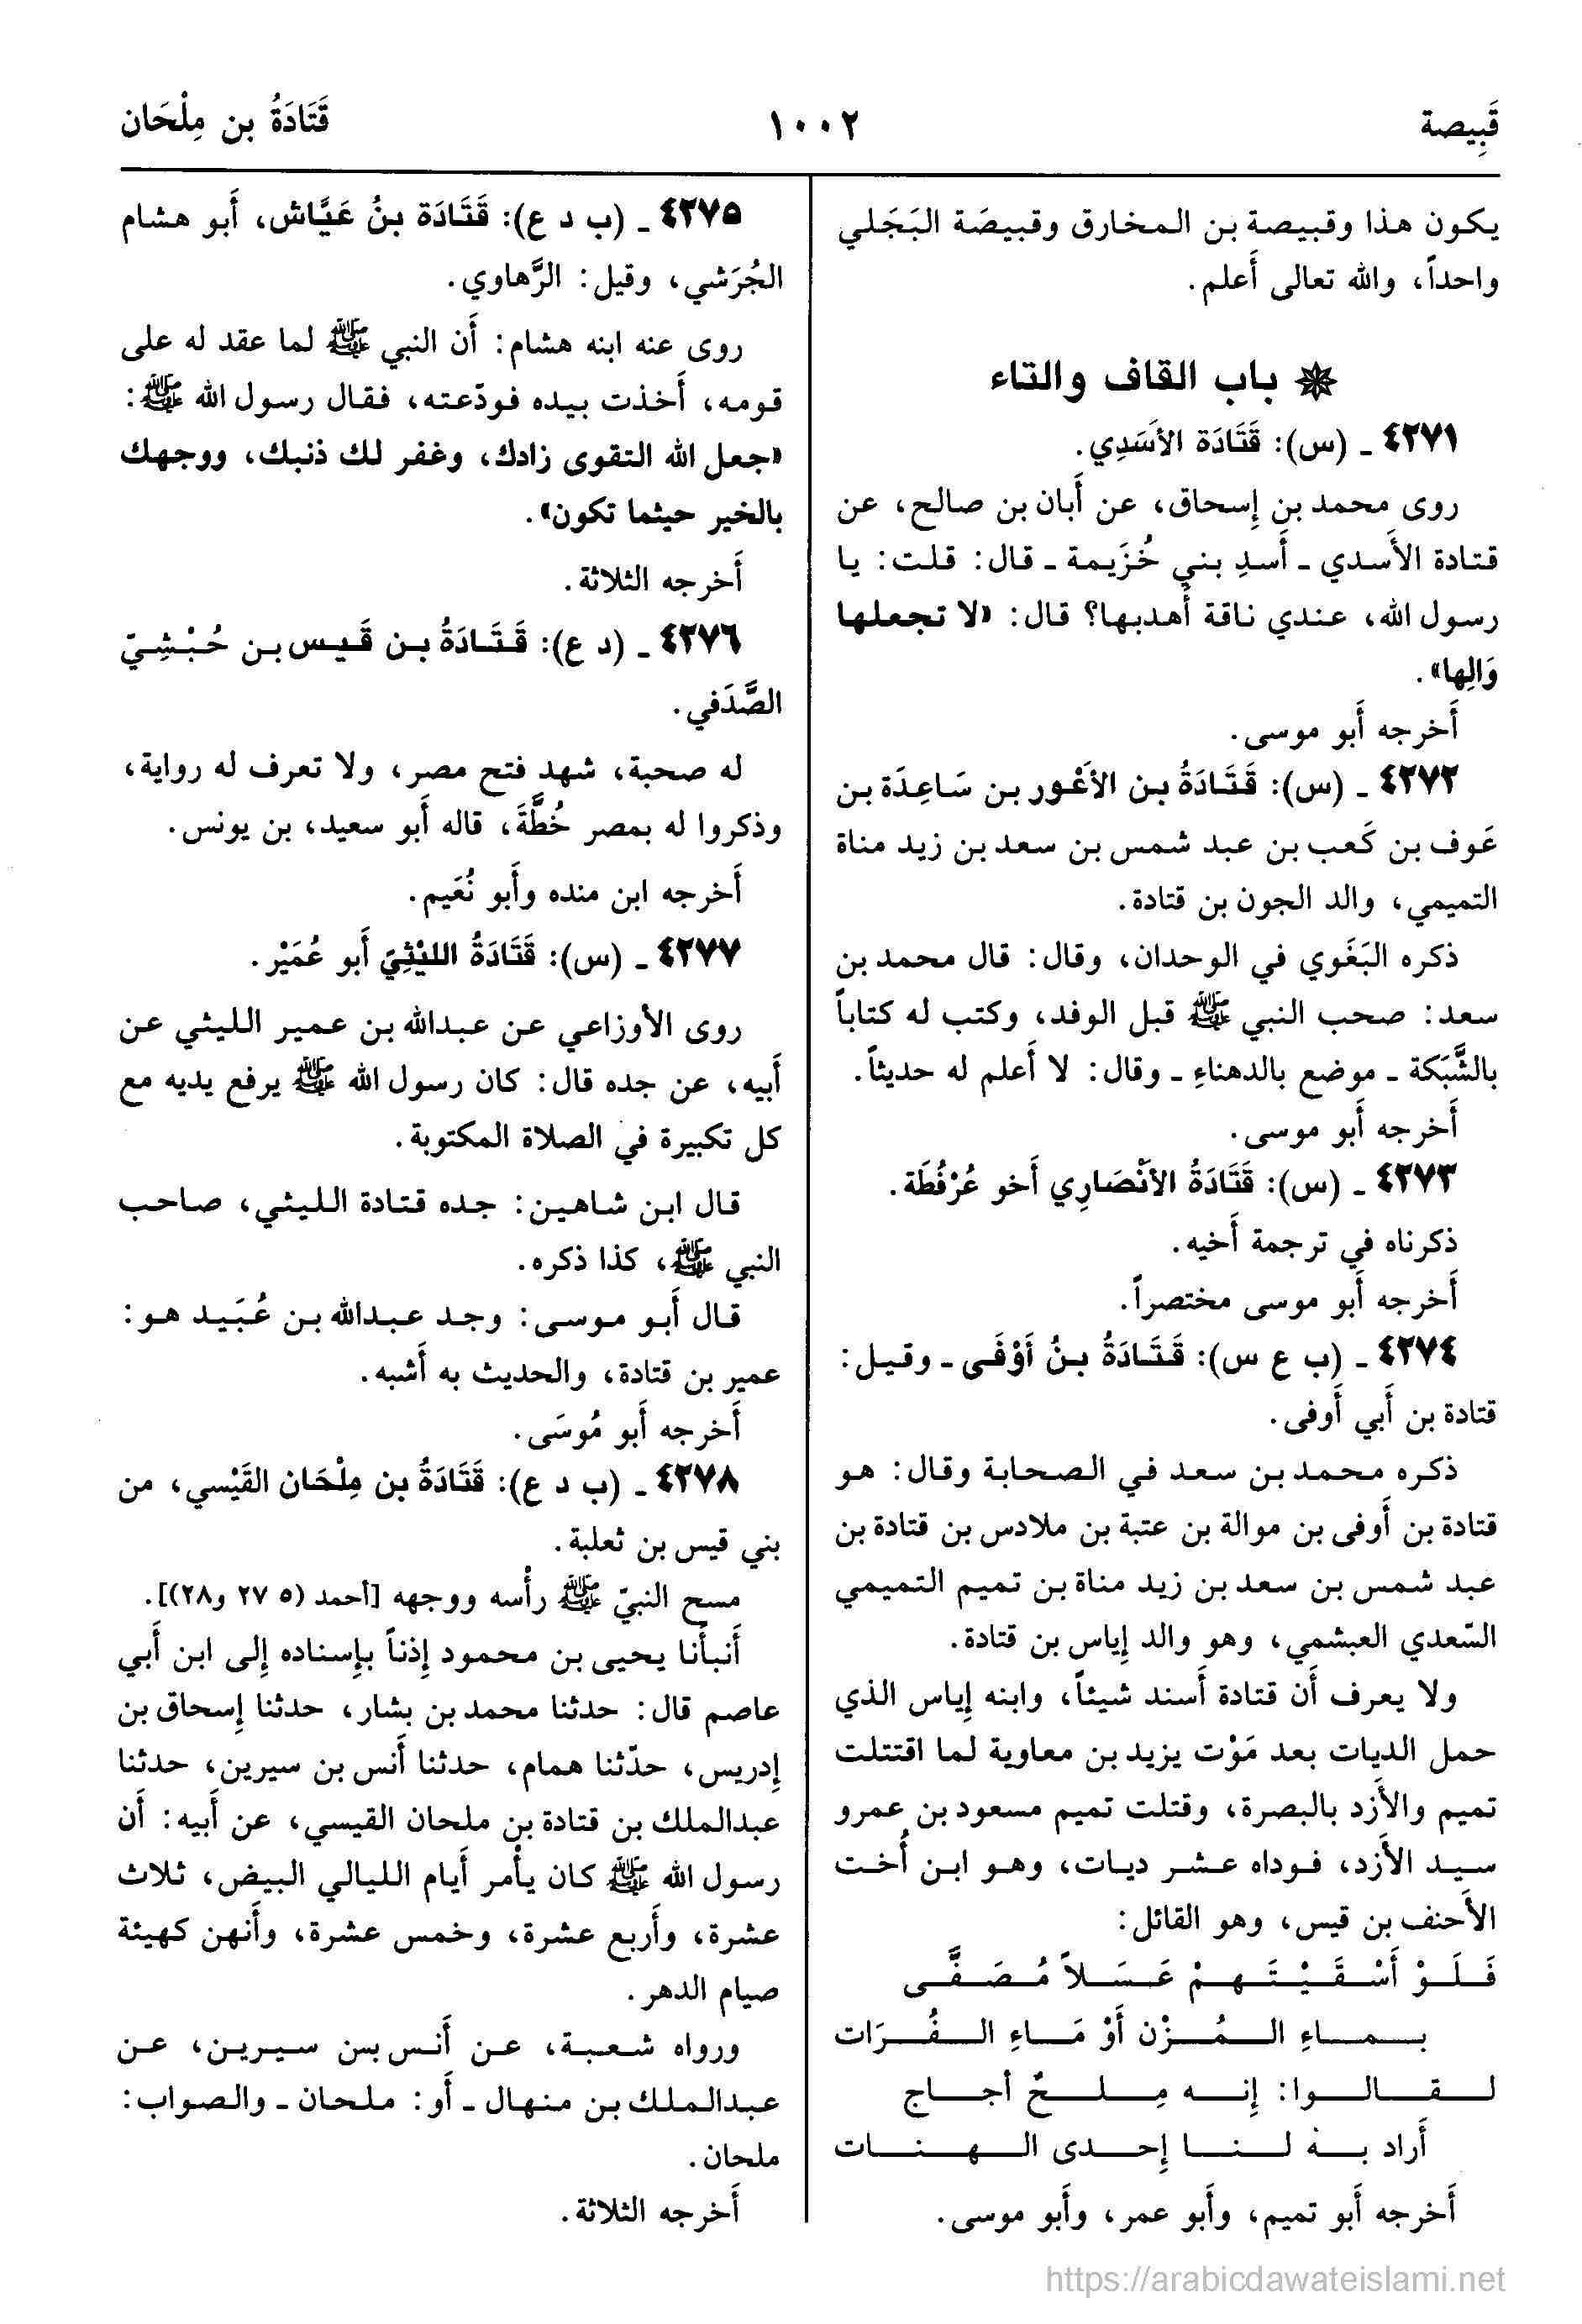 قَبِيصة
١٠٠٢
قَتَادَةُ بن مِلْحَان
يكون هذا وقبيصة بن المخارق وقبيصَة البَجَلي
واحداً، والله تعالى أَعلم.
باب القاف والتاء
٤٢٧١ ـ (س): قَتَادَة الأَسَدِي.
روى محمد بن إِسحاق، عن أَبان بن صالح، عن
قتادة الأَسدي ـ أَسدِ بني خُزَيمة ـ قال: قلت: يا
رسول الله، عندي ناقة أَهدبها؟ قال: «لا تجعلها
وَالِها».
أَخرجه أَبو موسى.
٤٢٧٢ ـ (س): قَتَادَةُ بن الأَعْور بن سَاعِدَة بن
عَوف بن كَعب بن عبد شمس بن سعد بن زيد مناة
التميمي، والد الجون بن قتادة.
ذكره البَغَوي في الوحدان، وقال: قال محمد بن
سعد: صحب النبي ﷺ قبل الوفد، وكتب له كتاباً
بالشَّبَكة ـ موضع بالدهناءِ ـ وقال: لا أَعلم له حديثاً.
أَخرجه أَبو موسى.
٤٢٧٣ ـ (س): قَتَادَةُ الأَنْصَارِي أَخو عُرْفُطَة.
ذكرناه في ترجمة أَخيه.
أَخرجه أَبو موسى مختصراً.
٤٢٧٤ ـ (ب ع س): قَتَادَةُ بنُ أَوْفَى ـ وقيل:
قتادة بن أَبي أَوفى.
ذكره محمد بن سعد في الصحابة وقال: هو
قتادة بن أَوفى بن موالة بن عتبة بن ملادس بن قتادة بن
عبد شمس بن سعد بن زيد مناة بن تميم التميمي
السّعدي العبشمي، وهو والد إِياس بن قتادة.
ولا يعرف أَن قتادة أَسند شيئاً، وابنه إِياس الذي
حمل الديات بعد مَوْت يزيد بن معاوية لما اقتتلت
تميم والأَزد بالبصرة، وقتلت تميم مسعود بن عمرو
سيد الأَزد، فوداه عشر ديات، وهو ابن أُخت
الأَحنف بن قيس، وهو القائل:
فَلَوْ أَسْقَيْتَهمْ عَسَلاً مُصَفَّى
بماءِ المُزْن أَوْ مَاءِ الفُرَات
لقالوا: إِنه مِلحٌ أجاج
أَراد به لنا إِحدى الهنات
أَخرجه أَبو تميم، وأَبو عمر، وأَبو موسى.
٤٢٧٥ ـ (ب د ع): قَتَادَة بنُ عَيَّاش، أَبو هشام
الجُرَشي، وقيل: الرَّهاوي.
روى عنه ابنه هشام: أَن النبي ﷺ لما عقد له على
قومه، أَخذت بيده فودّعته، فقال رسول الله ﷺ:
«جعل الله التقوى زادك، وغفر لك ذنبك، ووجهك
بالخير حيثما تكون».
أَخرجه الثلاثة.
٤٢٧٦ ـ (د ع): قَتَادَةُ بن قَيس بن حُبْشِيّ
الصَّدَفي.
له صحبة، شهد فتح مصر، ولا تعرف له رواية،
وذكروا له بمصر خُطَّةَ، قاله أَبو سعيد، بن يونس.
أَخرجه ابن منده وأَبو نُعَيم.
٤٢٧٧ ـ (س): قَتَادَةُ الليْثِيّ أَبو عُمَيْر.
روى الأوزاعي عن عبدالله بن عمير الليثي عن
أَبيه، عن جده قال: كان رسول الله ﷺ يرفع يديه مع
كل تكبيرة في الصلاة المكتوبة.
قال ابن شاهين: جده قتادة الليثي، صاحب
النبي ﷺ، كذا ذكره.
قال أَبو موسى: وجد عبدالله بن عُبَيد هو:
عمير بن قتادة، والحديث به أَشبه.
أَخرجه أَبو مُوسَى.
٤٢٧٨ ـ (ب د ع): قَتَادَةُ بن مِلْحَان القَيْسي، من
بني قيس بن ثعلبة.
مسح النبيّ ﷺ رأْسه ووجهه [أحمد (٥ ٢٧ و٢٨)].
أَنبأَنا يحيى بن محمود إِذناً بإِسناده إِلى ابن أَبي
عاصم قال: حدثنا محمد بن بشار، حدثنا إِسحاق بن
إِدريس، حدّثنا همام، حدثنا أَنس بن سيرين، حدثنا
عبدالملك بن قتادة بن ملحان القيسي، عن أَبيه: أَن
رسول الله ﷺ كان يأْمر أَيام الليالي البيض، ثلاث
عشرة، وأَربع عشرة، وخمس عشرة، وأَنهن كهيئة
صيام الدهر.
ورواه شعبة، عن أَنس بن سيرين، عن
عبدالملك بن منهال ـ أَو: ملحان ـ والصواب:
ملحان.
أَخرجه الثلاثة.
https://arabicdawateislami.net